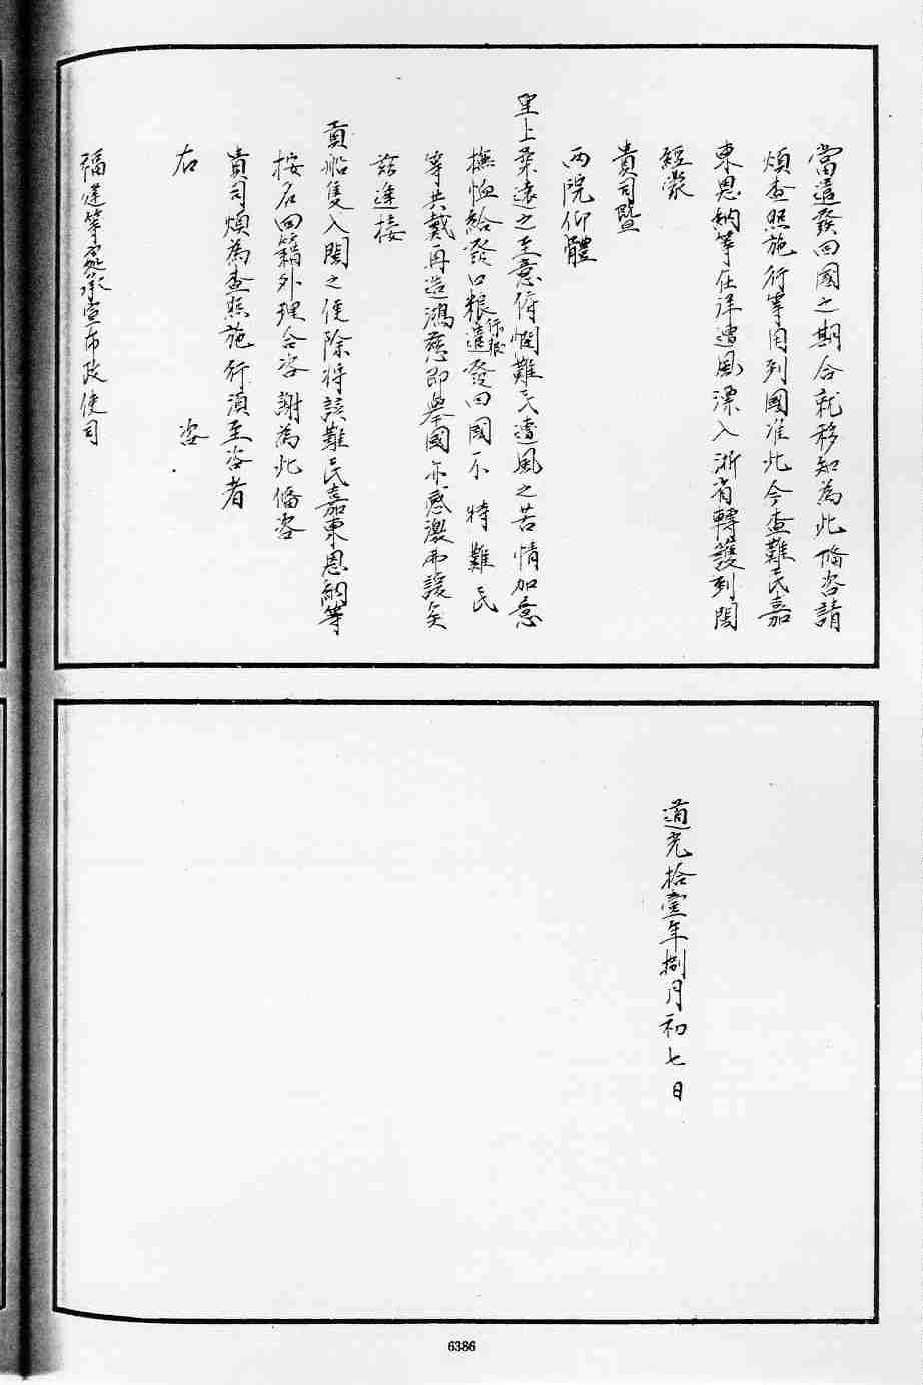 當遣發回國之期合就移知為此備咨請
煩查照施行等因到國准此今查難民嘉
東恩納等在洋遭風漂入浙省轉護到閩
經蒙
貴司暨
兩院仰體
聖上柔遠之至意俯憫難民遭風之苦情加意
撫恤給發口粮行粮遣發回國不特難民
等共戴再造鴻慈即舉國亦感激弗諼矣
茲逢接
貢船隻入閩之便除將該難民嘉東恩納等
按名回籍外理合咨謝為此備咨
貴司煩為查照施行須至咨者
右 咨
福建等處承宣布政使司
道光拾壹年捌月初七日
6386